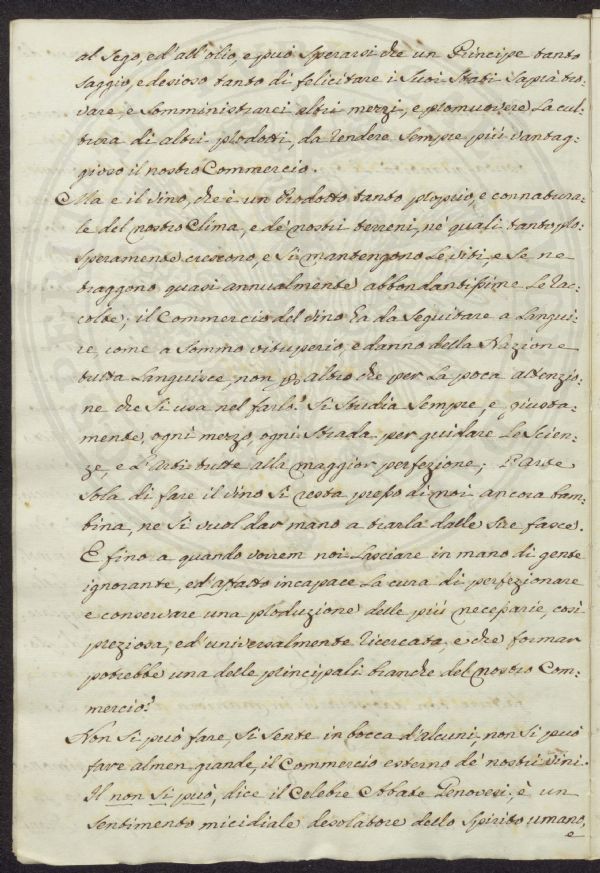 al Sego, ed all'olio, e può Sperarsi che un Principe tanto
Saggio, e desioso tanto di felicitare i Suoi Stati Saprà tro=
vare, e Somministrarci altri mezzi, e promuovere La cul=
tura di altri prodotti, da rendere Sempre più vantag=
gioso il nostro Commercio.
Ma e il vino, che è un Prodotto tanto proprio, e connatura=
le del nostro Clima, e de' nostri terreni, ne' quali tanto pro=
Speramente crescono, e Si mantengono Le viti, e Se ne
traggono quasi annualmente abbondantissime Le rac=
colte; il Commercio del vino ha da Seguitare a Langui=
re, come a Sommo vituperio, e danno della Nazione
tutta Languisce, non p altro che per La poca attenzio=
ne che Si usa nel farlo? Si Studia Sempre, e giusta=
mente, ogni mezzo, ogni Strada per guidare Le Scien=
ze, e L'arti tutte alla maggior perfezione; L'arte
Sola di fare il vino Si resta presso di noi ancora bam=
bina, ne Si vuol dar mano a trarla dalle Sue fasce.
E fino a quando vorrem noi Lasciare in mano di gente
ignorante, ed affatto incapace La cura di perfezionare
e conservare una produzione delle più necessarie, così
preziosa, ed universalmente ricercata, e che formar
potrebbe una delle principali branche del nostro Com=
mercio?
Non Si può fare, Si Sente in bocca d'alcuni, non Si può
fare almen grande, il Commercio esterno de' nostri vini.
Il non Si può, dice il Celebre Abate Genovesi, è un
Sentimento micidiale desolatore dello Spirito umano,
e